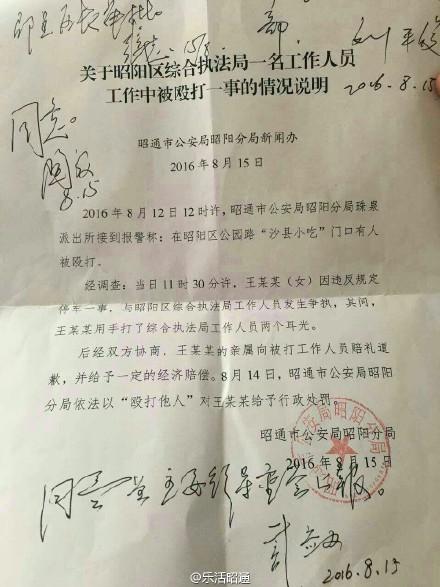 同意
8.15
2016.8.15
关于昭阳区综合执法局一名工作人员
工作中被殴打一事的情况说明
昭通市公安局昭阳分局新闻办
2016年8月15日
2016年8月12日12时许，昭通市公安局昭阳分局珠泉
派出所接到报警称：在昭阳区公园路“沙县小吃”门口有人
被殴打。
经调查：当日11时30分许，王某某（女）因违反规定
停车一事，与昭阳区综合执法局工作人员发生争执，其间，
王某某用手打了综合执法局工作人员两个耳光。
后经双方协商，王某某的亲属向被打工作人员赔礼道
歉，并给予一定的经济赔偿。8月14日，昭通市公安局昭阳
分局依法以“殴打他人”对王某某给予行政处罚。
昭通市公安局昭阳分局
2016年8月15日
2016.8.15
@乐活昭通